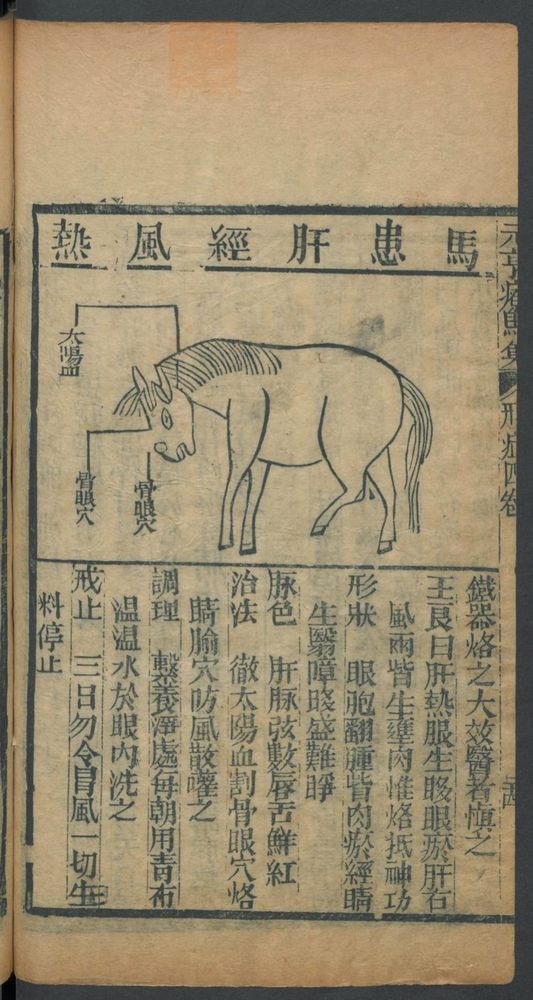 元亨療馬集 形症四卷
馬患肝經風熱
太陽血
骨眼穴
骨眼穴
鐵器烙之大效醫者愼之
王良曰肝熱眼生眵眼瘀肝有
風兩眥生壅肉惟烙抵神功
形狀 眼胞翻腫眥肉瘀經睛
生翳障眵盛難睜
脉色 肝脉弦數唇舌鮮紅
治法 徹太陽血割骨眼穴烙
睛腧穴防風散灌之
調理 繫養淨處每朝用青布
温温水於眼内洗之
戒止 三日勿令冒風一切生
料停止